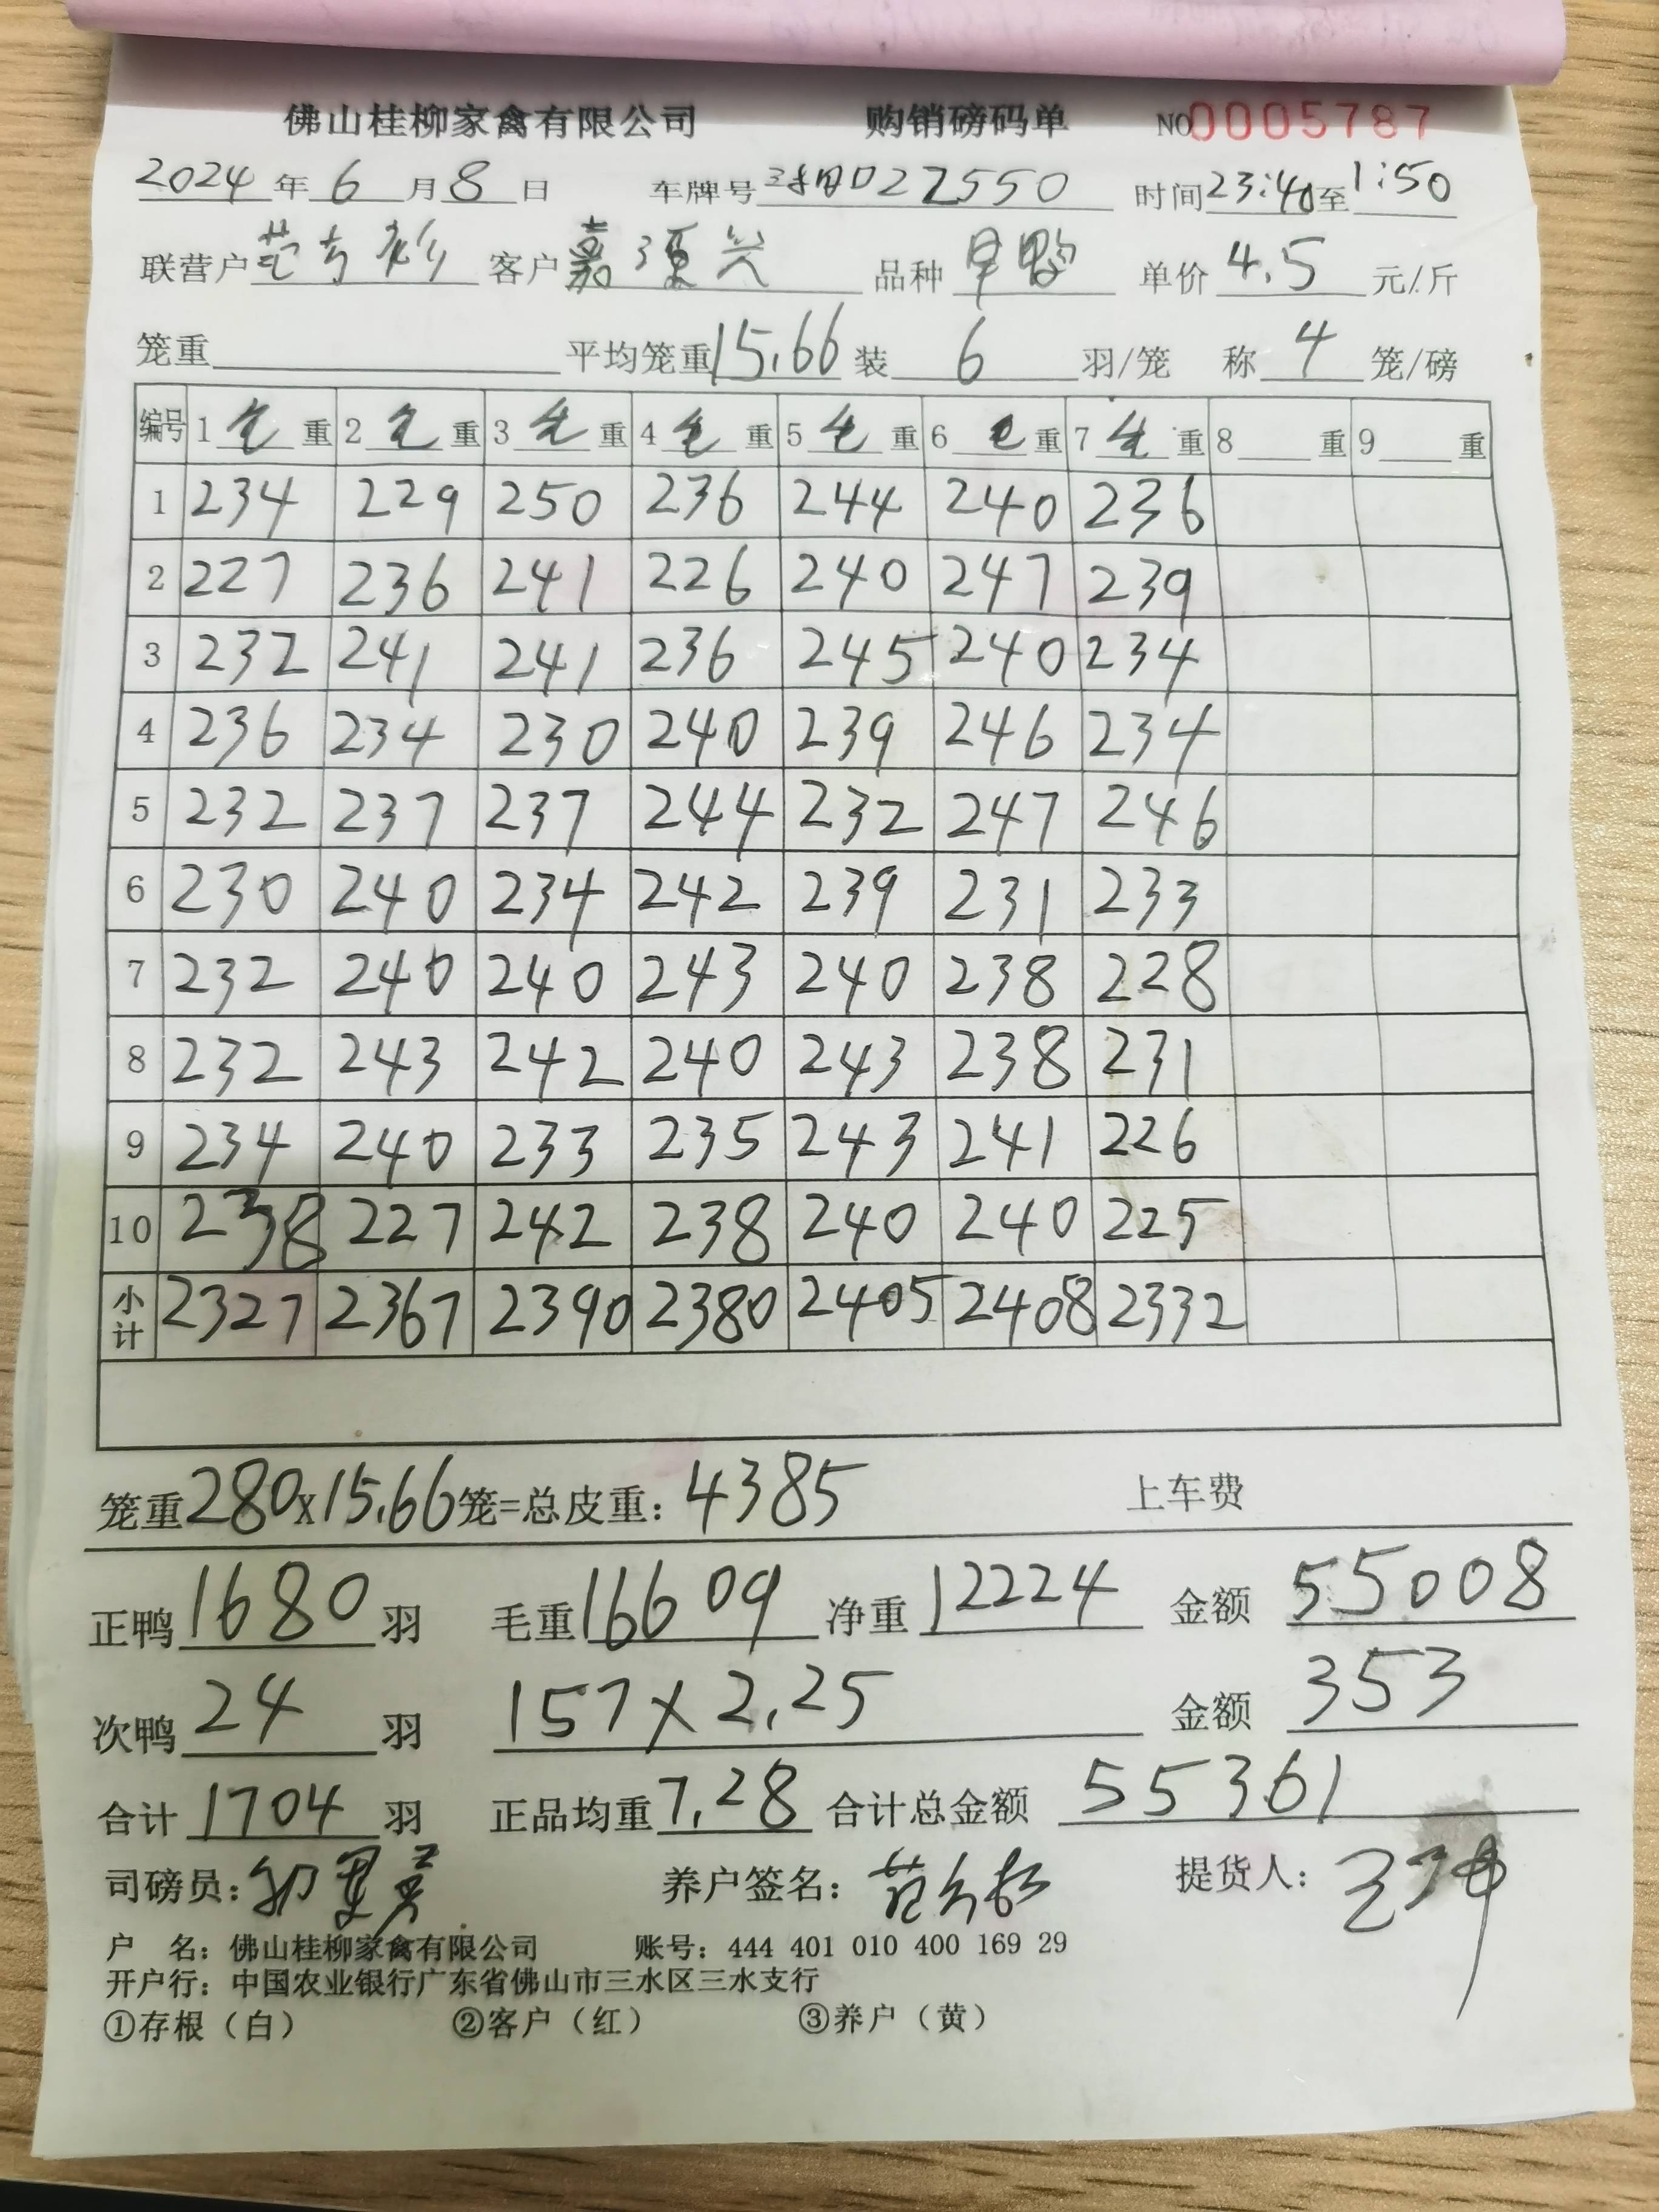 佛山桂柳家禽有限公司 购销磅码单 NO0005787
2024年6月8日 车牌号 D27550 时间23:40至1:50
联营户 客户 品种 单价4.5元/斤
笼重 平均笼重15.66装6羽/笼 称4笼/磅
编号 1毛重 2毛重 3毛重 4毛重 5毛重 6毛重 7毛重 8 重 9 重
1 234 229 250 236 244 240 236
2 227 236 241 226 240 247 239
3 232 241 241 236 245 240 234
4 236 234 230 240 239 246 234
5 232 237 237 244 232 247 246
6 230 240 234 242 239 231 233
7 232 240 240 243 240 238 228
8 232 243 242 240 243 238 231
9 234 240 233 235 243 241 226
10 238 227 242 238 240 240 225
小计 2327 2367 2390 2380 2405 2408 2332
笼重280x15.66笼=总皮重：4385 上车费
正鸭1680羽 毛重16609 净重12224 金额55008
次鸭24羽 157x2.25 金额353
合计1704羽 正品均重7.28 合计总金额55361
司磅员： 养户签名： 提货人：
户 名：佛山桂柳家禽有限公司 账号：444 401 010 400 169 29
开户行：中国农业银行广东省佛山市三水区三水支行
①存根（白） ②客户（红） ③养户（黄）